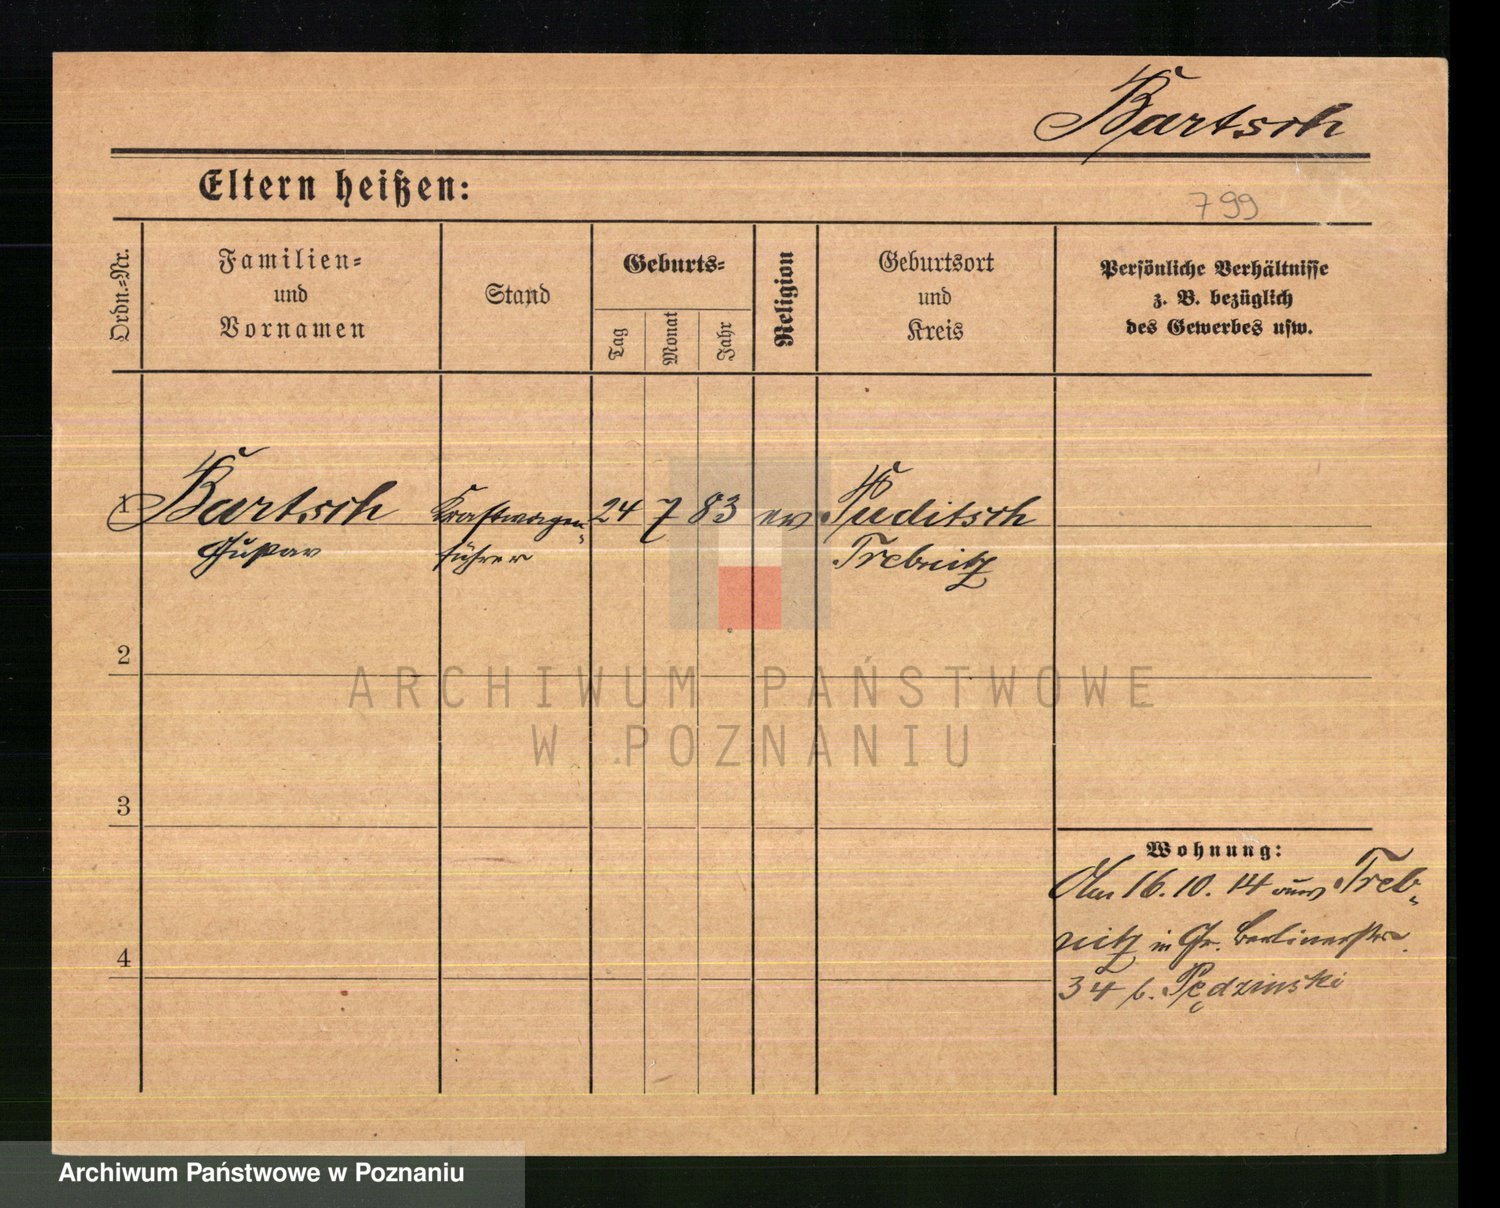 Bartsch
Eltern heißen:
799
Ordn.-Nr.
Familien-
und
Vornamen
Stand
Geburts-
Tag
Monat
Jahr
Religion
Geburtsort
und
Kreis
Persönliche Verhältnisse
z. B. bezüglich
des Gewerbes usw.
1 Bartsch Kraftwagen- 24 7 83 ev Puditsch
Gustav führer Trebnitz
2
ARCHIWUM PAŃSTWOWE
W POZNANIU
3
Wohnung:
Am 16.10.14 aus Treb-
nitz in Gr. Berlinerstr.
4
34 b. Pędzinski
Archiwum Państwowe w Poznaniu